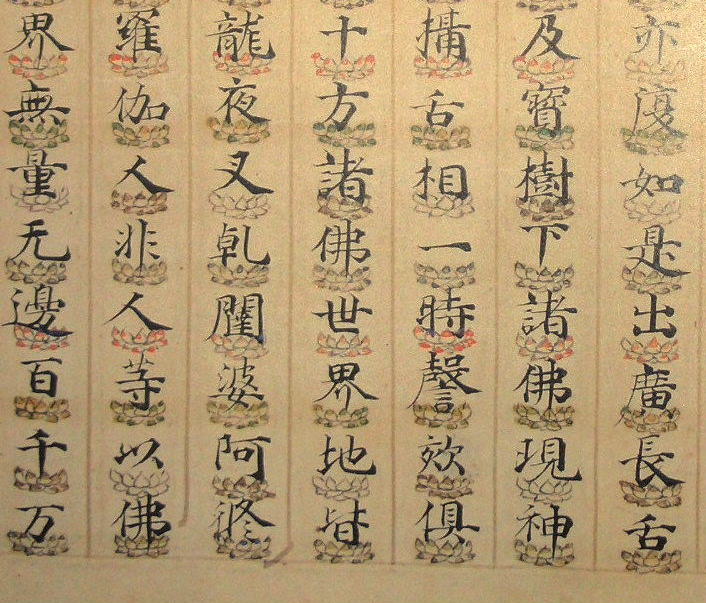 亦復如是出廣長舌
及寶樹下諸佛現神
攝舌相一時謦欬俱
十方諸佛世界地皆
龍夜叉乹闥婆阿脩
羅伽人非人等以佛
界無量无邊百千万